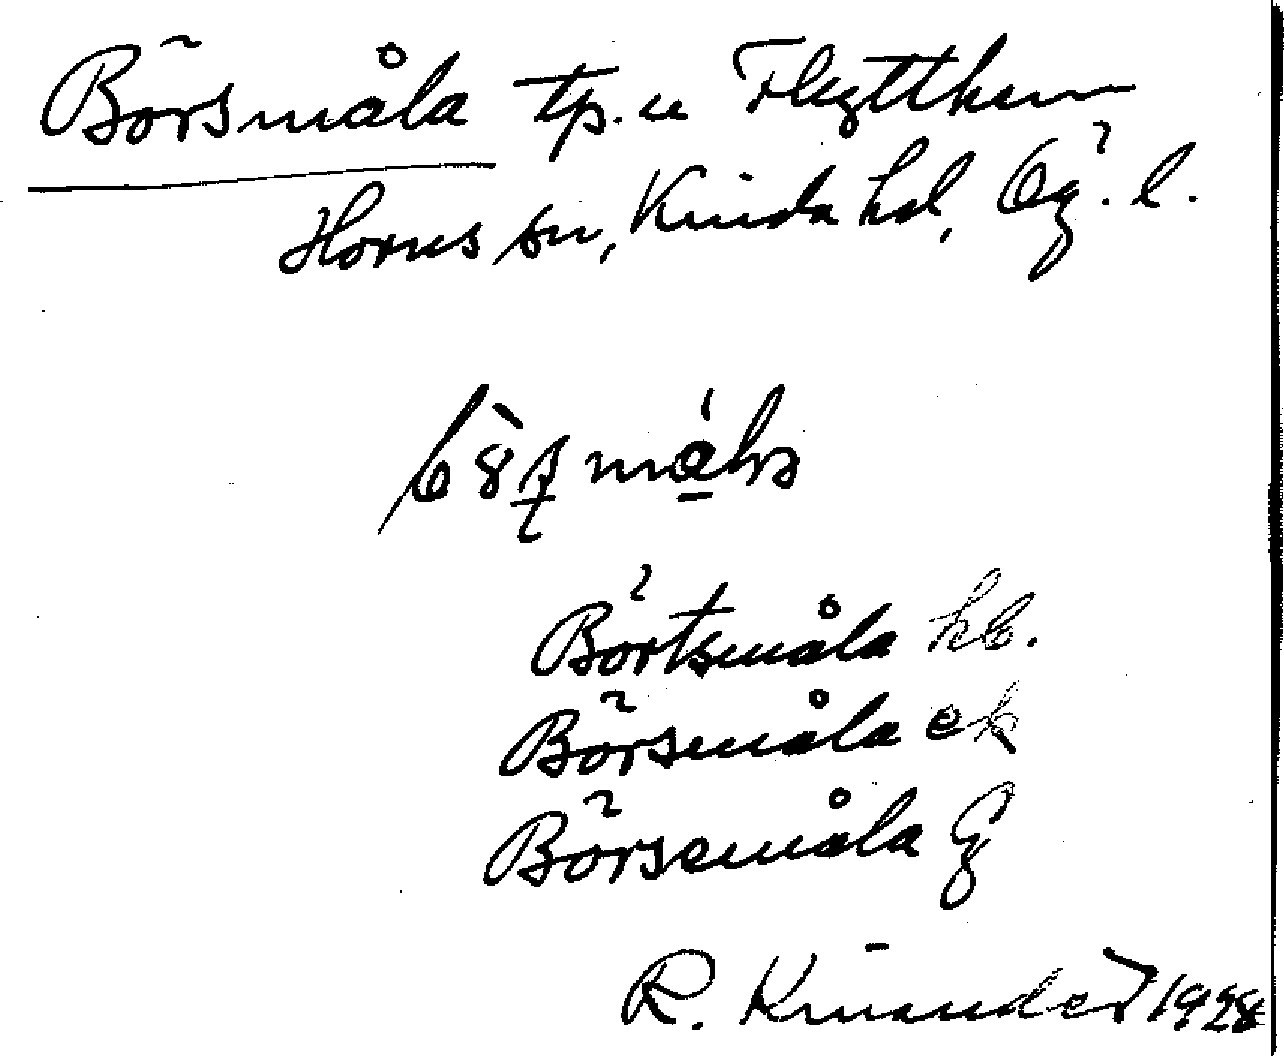 Börsmåla tp. u Flytthem
Horns sn, Kinda hd, Ög. l.
Börtsmåla hb.
Börsmåla ek
Börsemåla
R. Kinander 1928